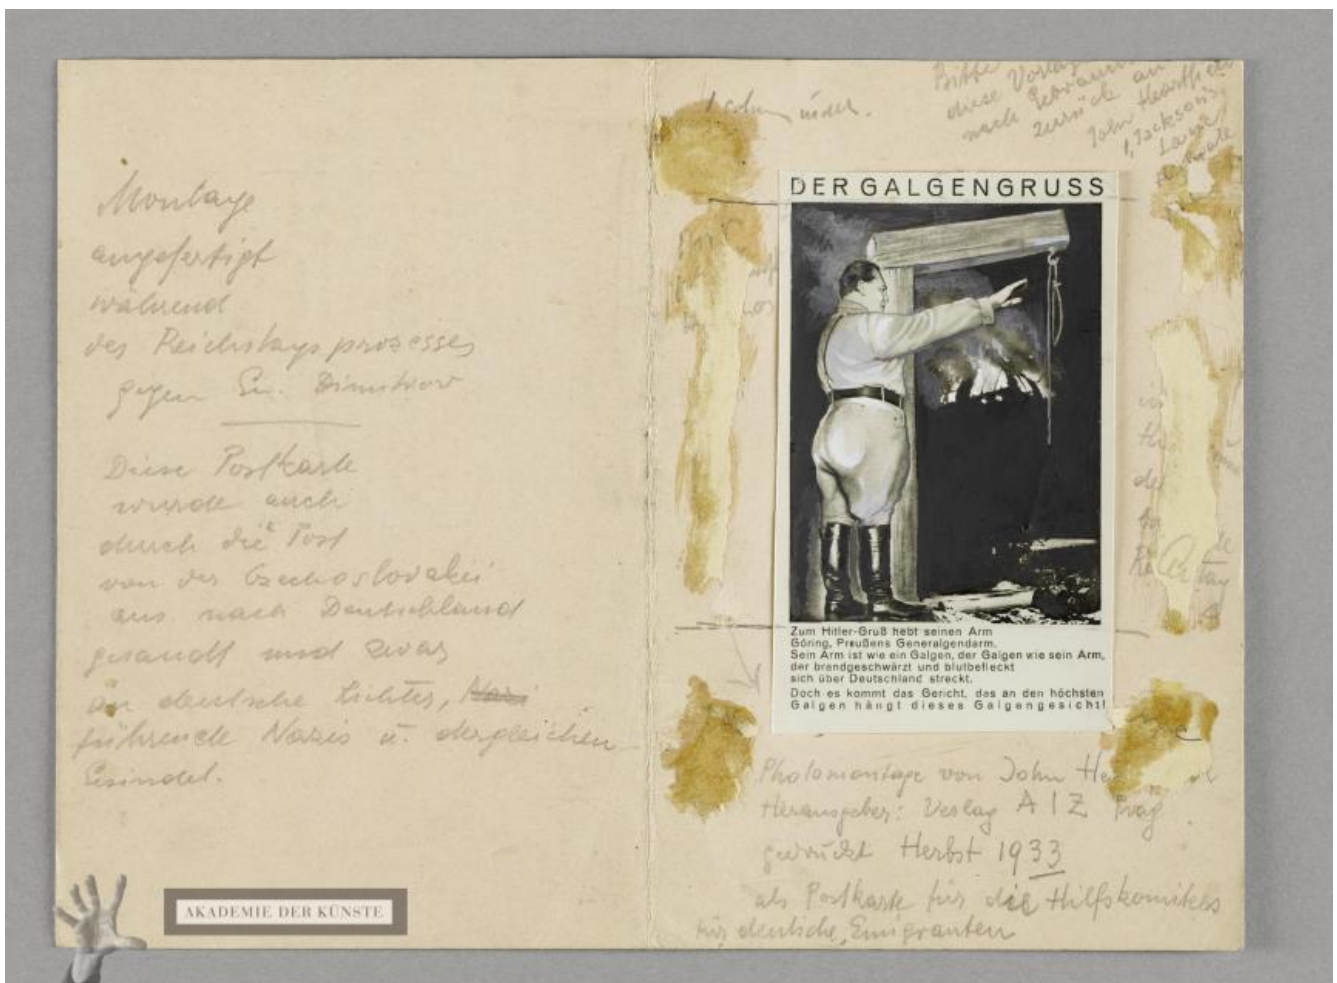 Montage
angefertigt
während
des Reichstagsprozesses
gegen Gen. Dimitrow
Diese Postkarte
wurde auch
durch die Post
von der Czechoslovakei
aus nach Deutschland
gesandt und zwar
an deutsche Richter, Nazi
führende Nazis u. dergleichen
Gesindel.
AKADEMIE DER KÜNSTE
Bitte
diese Vorlage
nach Gebrauch
zurück an
John Heartfield
1, Jacksons
Lane
Highgate
DER GALGENGRUSS
Zum Hitler-Gruß hebt seinen Arm
Göring, Preußens Generalgendarm.
Sein Arm ist wie ein Galgen, der Galgen wie sein Arm,
der brandgeschwärzt und blutbefleckt
sich über Deutschland streckt.
Doch es kommt das Gericht, das an den höchsten
Galgen hängt dieses Galgengesicht!
Photomontage von John
Herausgeber: Verlag AIZ Prag
gedruckt Herbst 1933
als Postkarte für die Hilfskomitees
für deutsche Emigranten